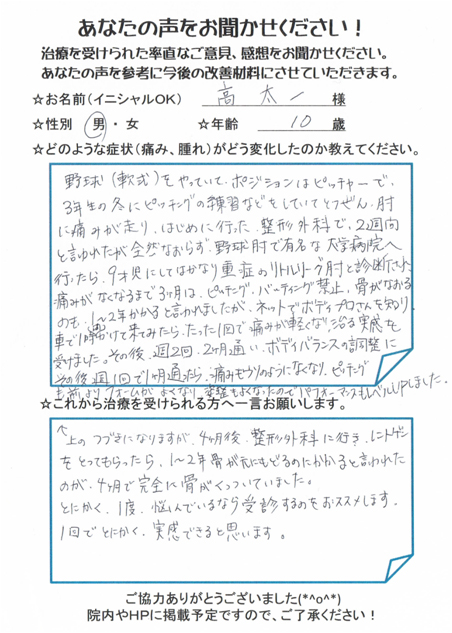 あなたの声をお聞かせください！
治療を受けられた率直なご意見、感想をお聞かせください。
あなたの声を参考に今後の改善材料にさせていただきます。
☆お名前(イニシャルOK) 高 太一 様
☆性別 男・女 ☆年齢 10 歳
☆どのような症状(痛み、腫れ)がどう変化したのか教えてください。
野球(軟式)をやっていて、ポジションはピッチャーで、
3年生の冬にピッチングの練習などをしていてとつぜん、肘
に痛みが走り、はじめに行った整形外科で、2週間
と言われたが全然なおらず、野球肘で有名な大学病院へ
行ったら、9才児にしてはかなり重症のリトルリーグ肘と診断され
痛みがなくなるまで3ヶ月は、ピッチング、バッティング禁止、骨がなおる
のも、1〜2年かかると言われましたが、ネットでボディプロさんを知り、
車で1時間かけて来てみたら、たった1回で痛みが軽くなり治る実感を
受けました。その後、週2回、2ヶ月通い、ボディバランスの調整に
その後、週1回で1ヶ月通ったら、痛みもウソのようになくなり、ピッチング
も前よりフォームがよくなり、姿勢もよくなったのでパフォーマンスもレベルUPしました。
☆これから治療を受けられる方へ一言お願いします。
↑上のつづきになりますが、4ヶ月後、整形外科に行き、レントゲン
をとってもらったら、1〜2年骨が元にもどるのにかかると言われた
のが、4ヶ月で完全に骨がくっついていました。
とにかく、1度、悩んでいるなら受診するのをおススメします。
1回でとにかく、実感できると思います。
ご協力ありがとうございました(*^o^*)
院内やHPに掲載予定ですので、ご了承ください！